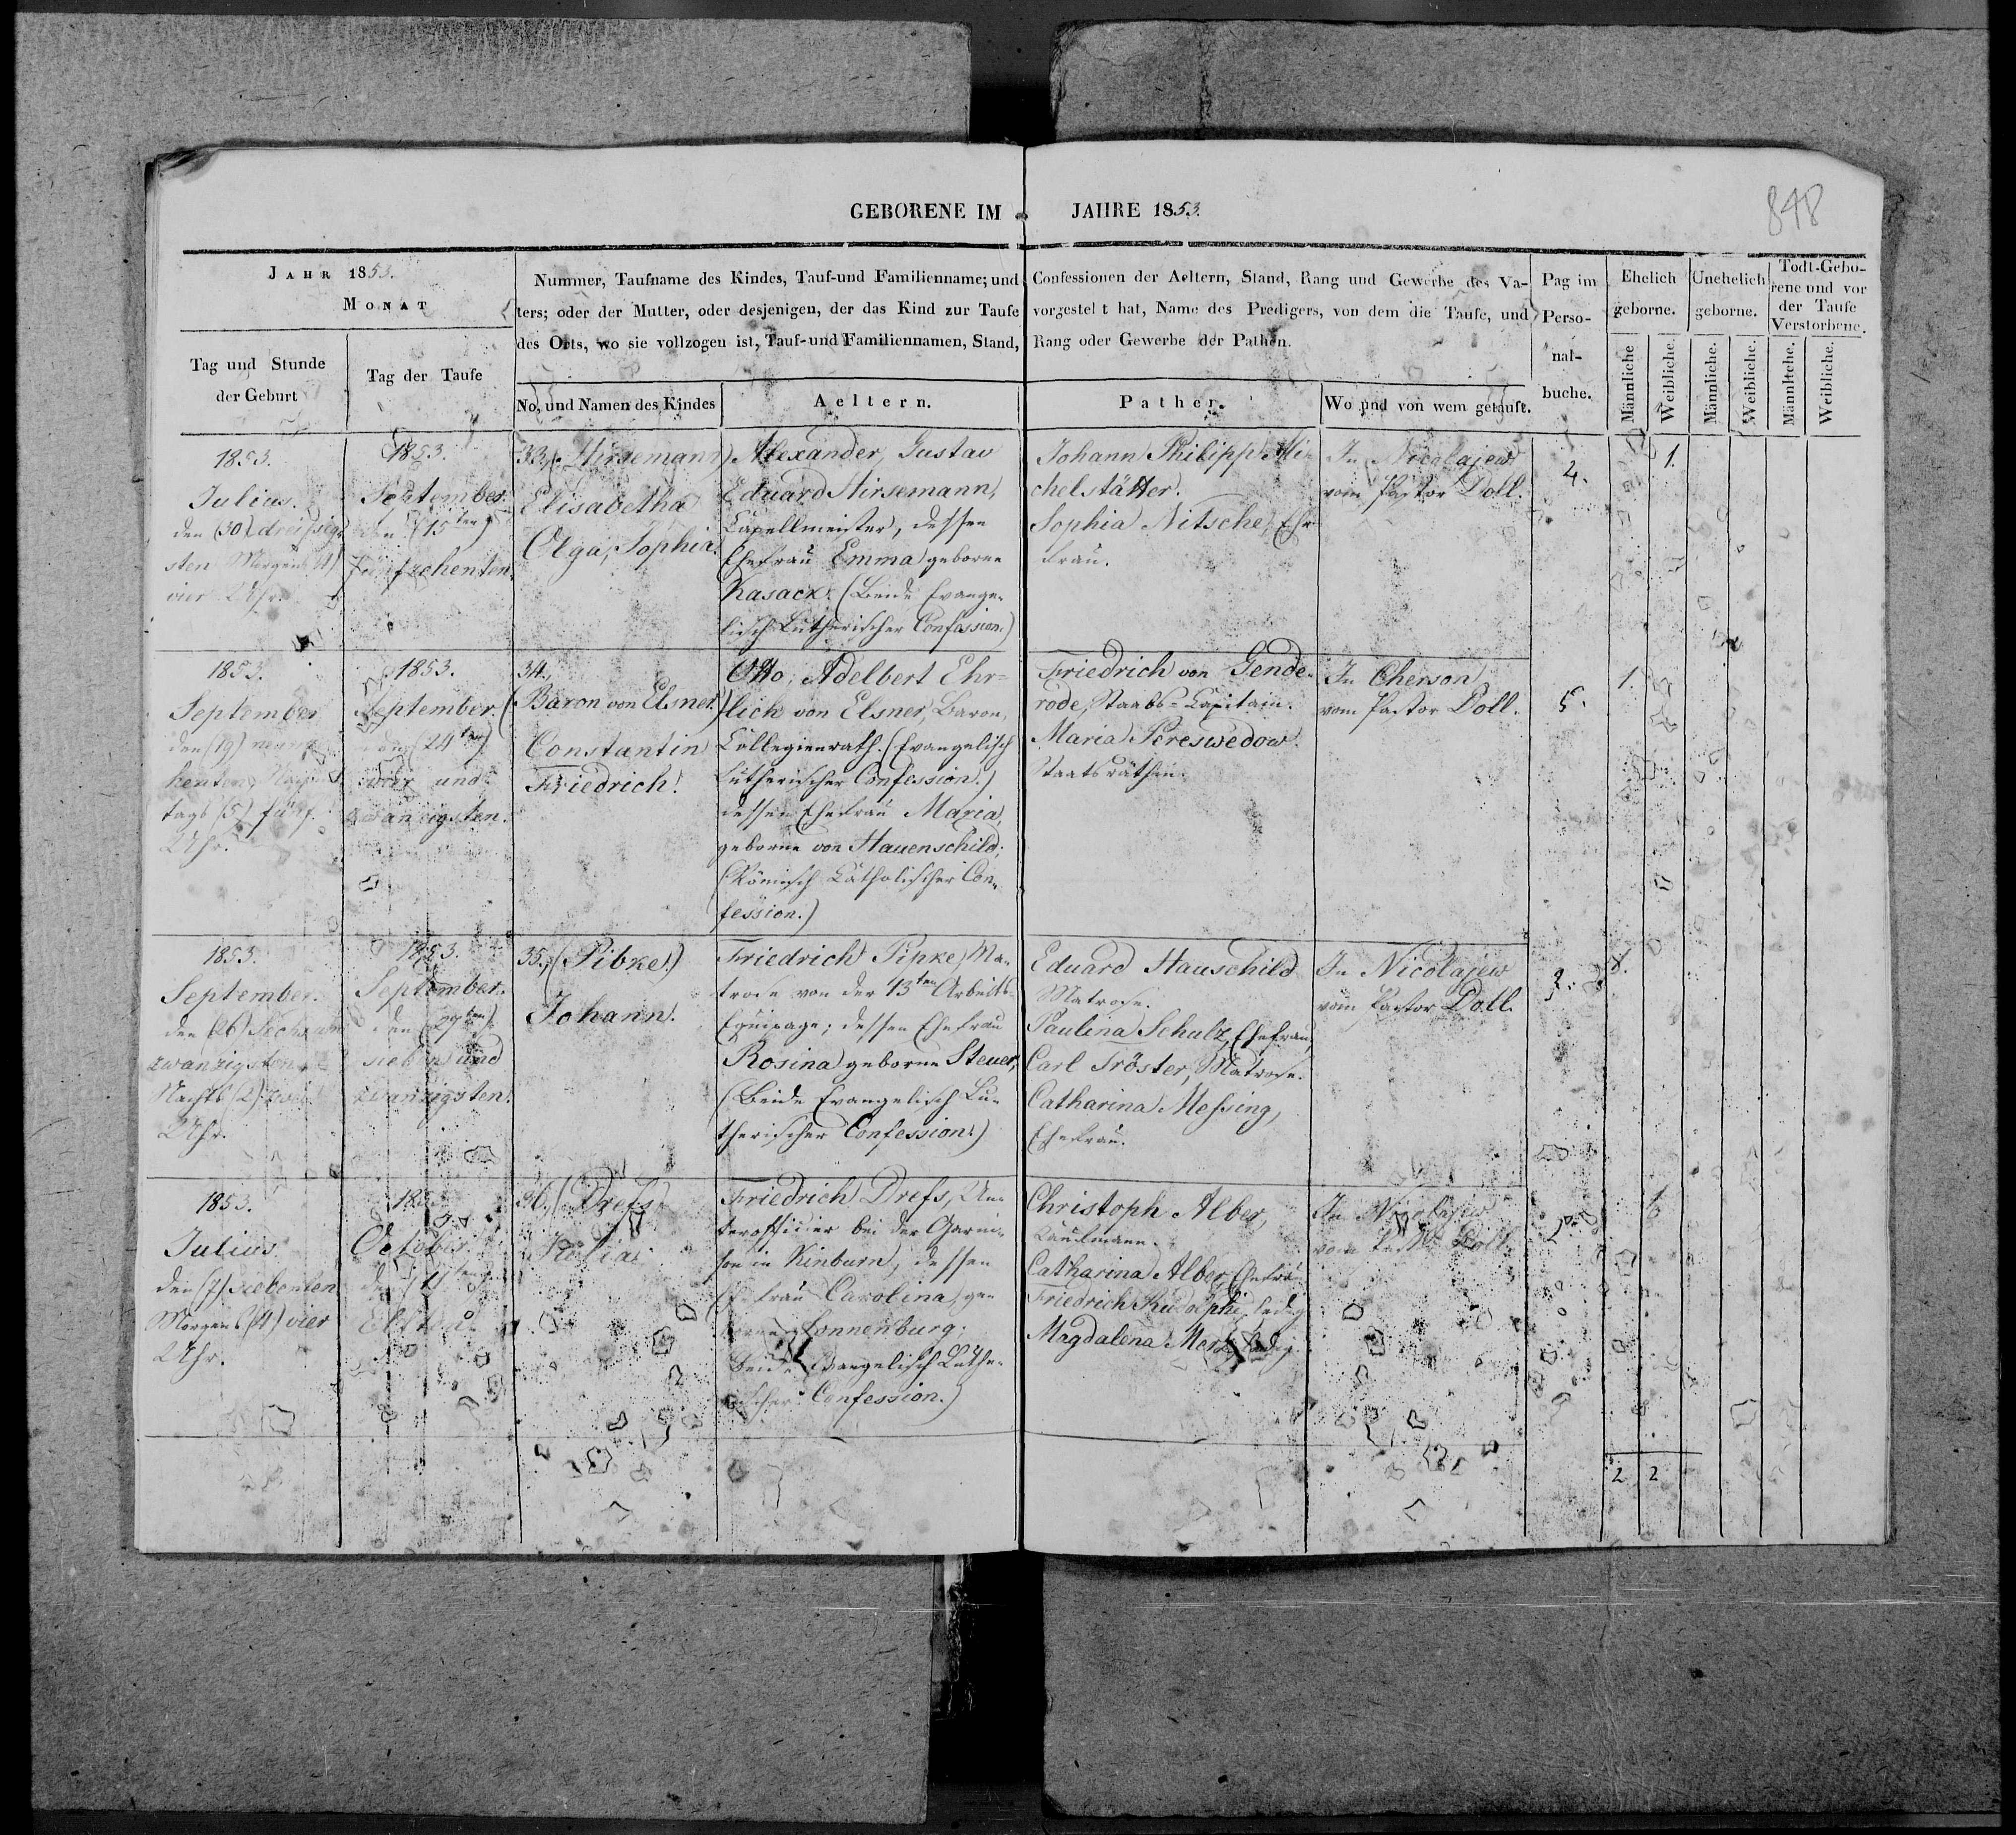 848
GEBORENE IM JAHRE 1853.
JAHR 1853.
MONAT
Tag und Stunde
der Geburt
Tag der Taufe
Nummer, Taufname des Kindes, Tauf-und Familienname; und
ters; oder der Mutter, oder desjenigen, der das Kind zur Taufe
des Orts, wo sie vollzogen ist, Tauf-und Familiennamen, Stand,
No, und Namen des Kindes
Aeltern.
Confessionen der Aeltern, Stand, Rang und Gewerbe des Va-
vorgestellt hat, Name des Predigers, von dem die Taufe, und
Rang oder Gewerbe der Pathen.
Pathen.
Wo und von wem getauft.
Pag im
Perso-
nal-
buche.
Ehelich
geborne.
Unehelich
geborne.
Todt-Gebo-
rene und vor
der Taufe
Verstorbene.
Männliche
Weibliche.
Männliche.
Weibliche.
Männliche.
Weibliche.
1853.
Julius.
den (30) dreissig-
sten Morgens (4)
vier Uhr.
1853.
September
den (15ten)
Fünfzehenten.
33. (Hirsemann)
Elisabetha
Olga, Sophia.
Alexander, Gustav
Eduard Hirsemann,
Capellmeister, dessen
Ehefrau Emma geborne
Kasack. (Beide Evange-
lisch Lutherischer Confession.)
Johann Philipp Mi-
chelstätter.
Sophia Nitsche, Ehe-
frau.
In Nicolajew
vom Pastor Doll.
4.
1.
1853.
September
den (19) neunz-
henten, Nachmit-
tags (5) fünf
Uhr.
1853.
September
den (24ten)
vier und
zwanzigsten.
34.
(Baron von Elsner.)
Constantin
Friedrich.
Otto, Adelbert Ehr-
lich von Elsner, Baron,
Collegienrath. (Evangelisch
Lutherischer Confession.)
dessen Ehefrau Maria,
geborne von Hauenschild;
(Römisch Katholischer Con-
fession.)
Friedrich von Gende-
rode, Staabs-Kapitain.
Maria Pereswedow.
Staatsräthin.
In Cherson
vom Pastor Doll.
5.
1.
1853.
September.
den (26) Sechsund
zwanzigsten
Nachts (2) zwei
Uhr.
1853.
September.
den (27ten)
sieben und
zwanzigsten.
35. (Pibke.)
Johann.
Friedrich Pipke, Ma-
trose von der 13ten Arbeits-
Equipage; dessen Ehefrau
Rosina geborne Steuer,
(Beide Evangelisch Lu-
therischer Confession.)
Eduard Hauschild
Matrose.
Paulina Schulz, Ehefrau,
Carl Tröster, Matrose.
Catharina Messing,
Ehefrau.
In Nicolajew
vom Pastor Doll.
1.
1853.
Julius.
den (7) siebenten
Morgens (4) vier
Uhr.
October
36. (Drefs)
Julia.
Friedrich Drefs, Un-
terofficier bei der Garni-
son in Kinburn, dessen
Ehefrau Carolina, ge-
borne Sonnenburg;
Beide Evangelisch Luthe-
rischer Confession.)
Christoph Alber,
Kaufmann.
Catharina Alber, Ehefrau
Friedrich Rudolphi, ledig
Magdalena Merz, ledig.
In Nicolajew
vom Pastor Doll
1.
2 2